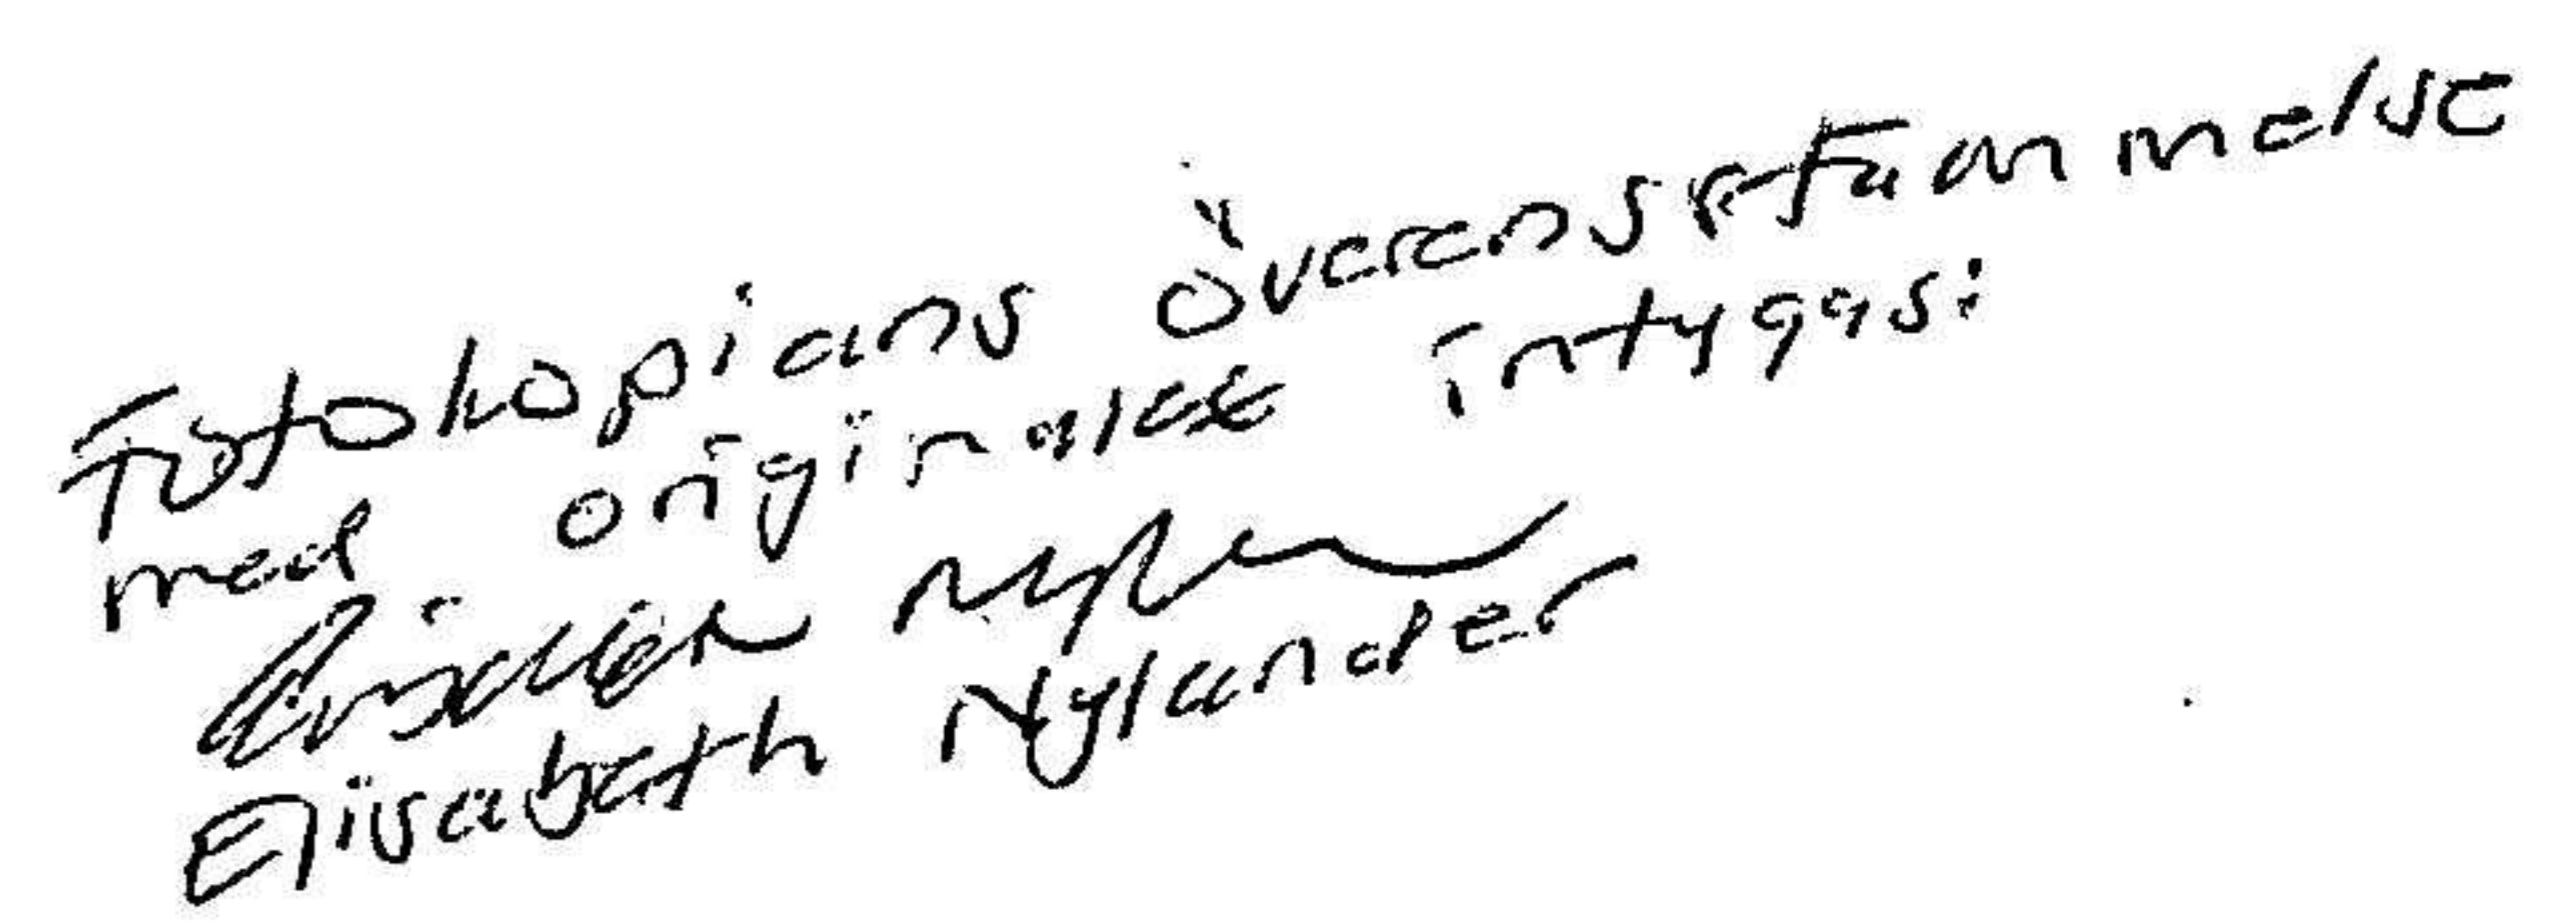 Fotokopians överensstämmelse
med originalet intygas:
Elisabeth Nylander